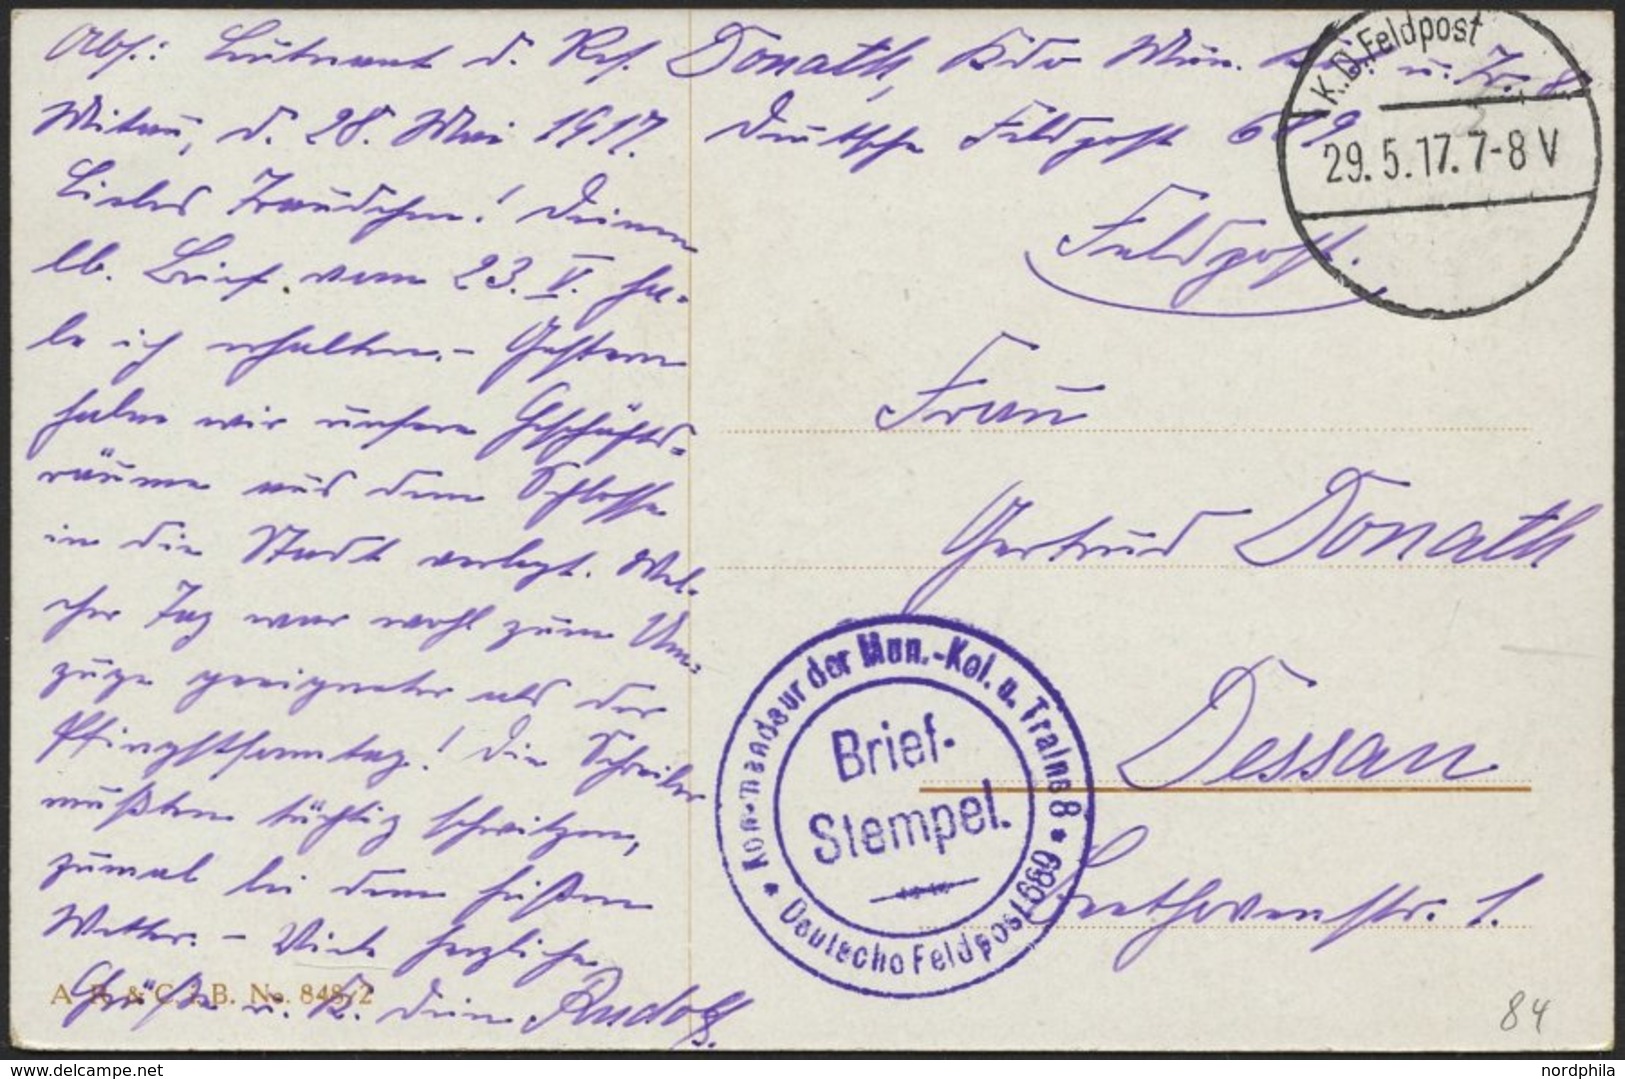 Abs.: Leutnant d. Res. Donath, Kdr Mun. Kol. u. Tr. 8.
Mitau, d. 28. Mai 1917. Deutsche Feldpost 689
K.D. Feldpost
29.5.17.7-8 V
Liebes Traudchen! Deinen
lb. Brief vom 23. V. ha-
be ich erhalten. - Gestern
haben wir unsere Geschäfts-
räume aus dem Schlosse
in die Stadt verlegt. Wel-
cher Tag war wohl zum Um-
zuge geeigneter als der
Pfingstsonntag! Die Schreiber
mußten tüchtig schwitzen,
zumal bei dem heißen
Wetter. - Viele herzliche
Grüße u. K. Dein Rudolf.
A. R. & C. i. B. No. 848/2
Feldpost.
Frau
Gertrud Donath
Dessau
Beethovenstr. 1.
Kommandeur der Mun.-Kol. u. Trains 8
* Deutsche Feldpost 689 *
Brief-
Stempel.
84
delcampe.net
nordphila